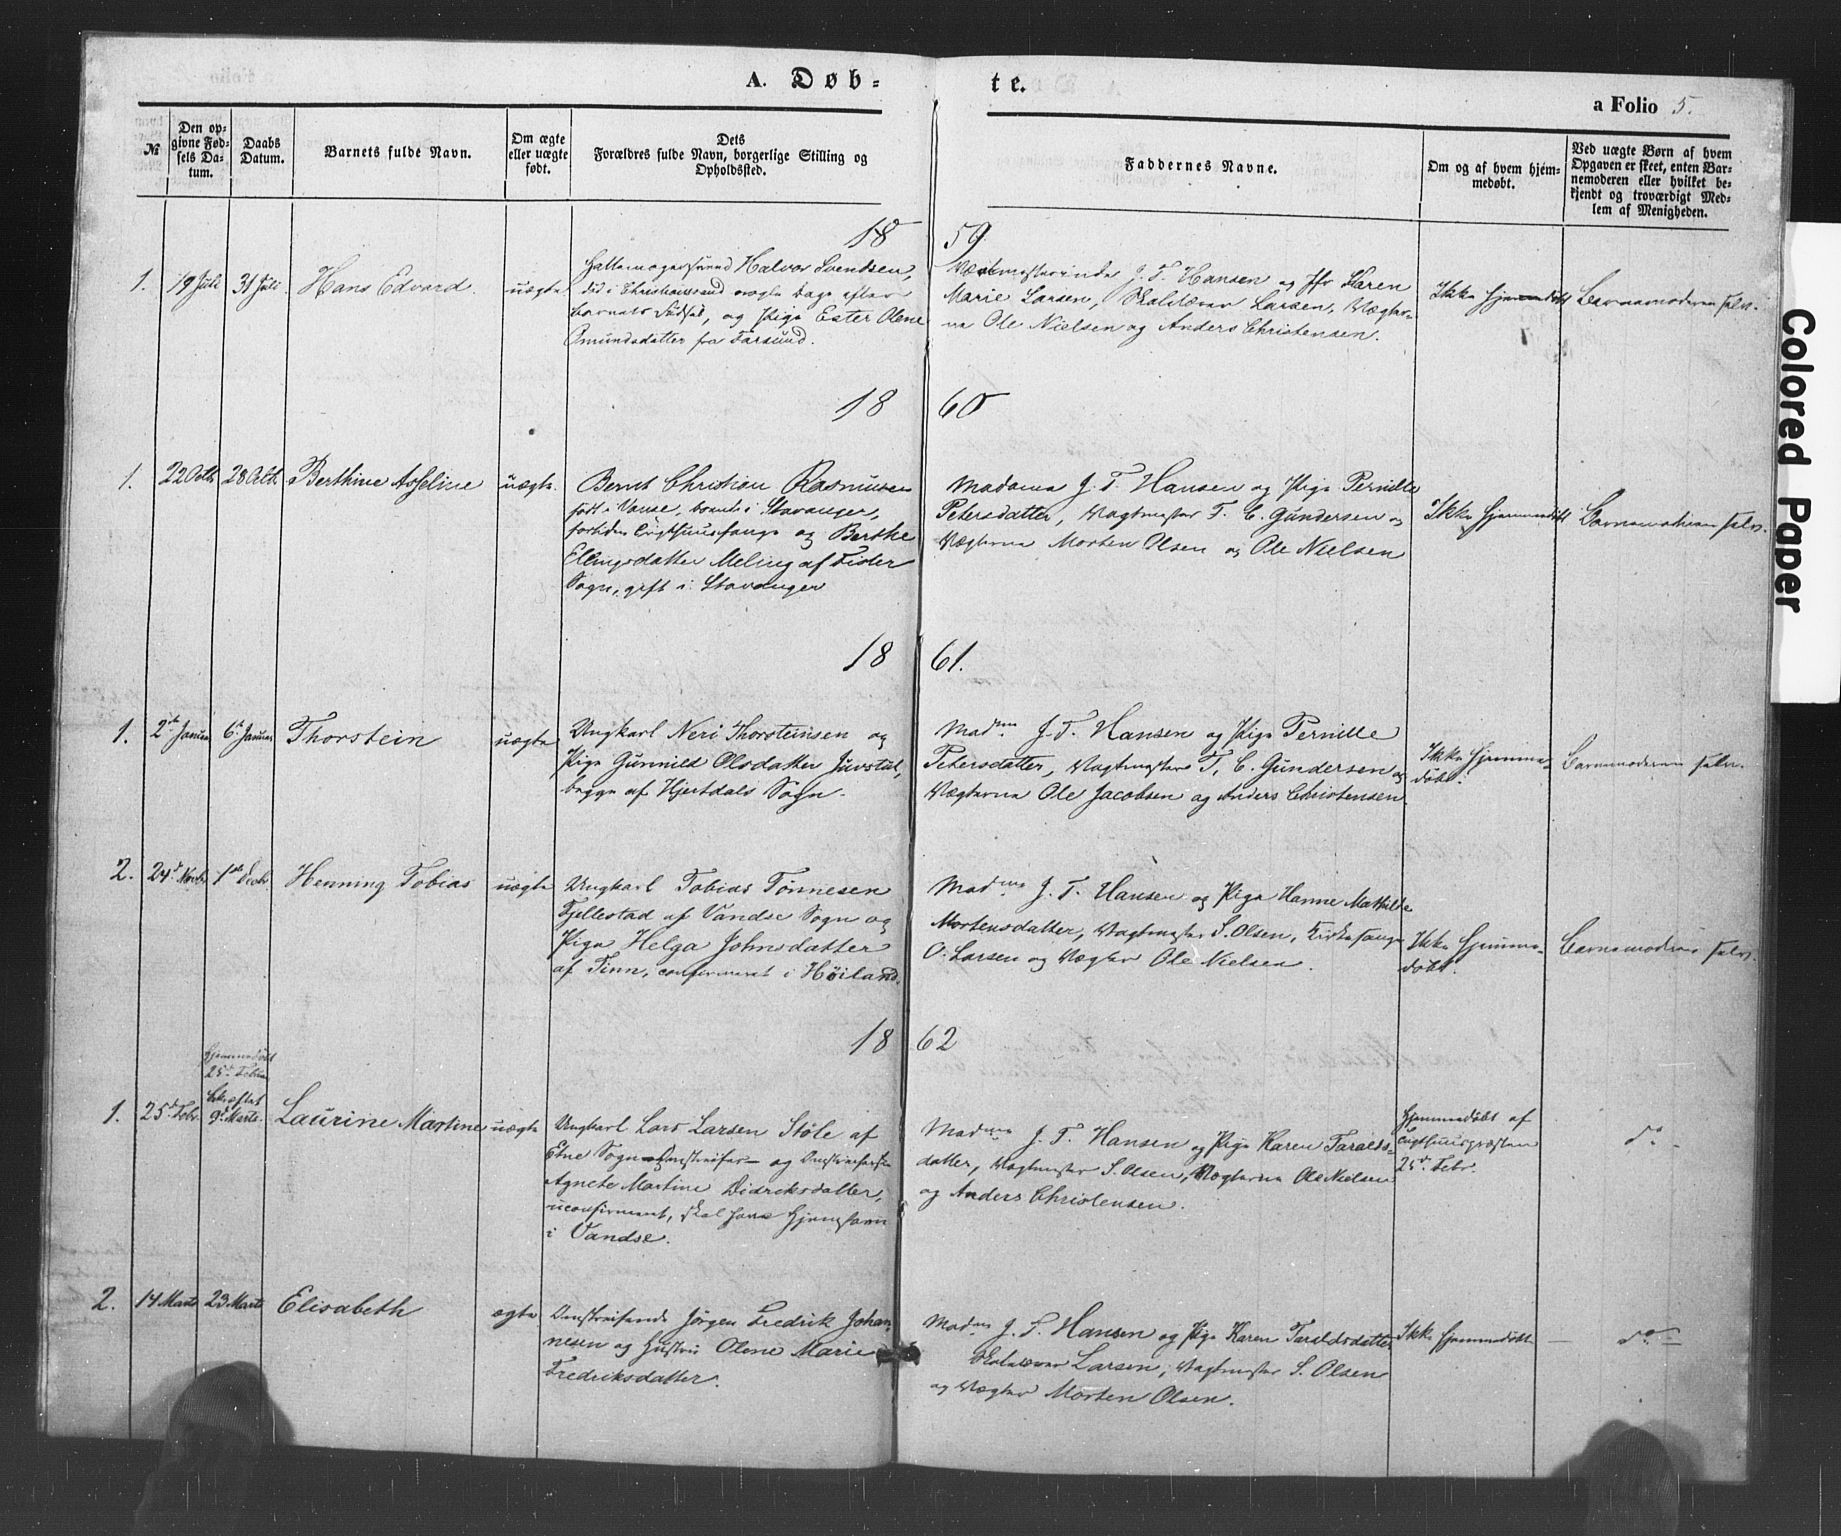 A. Døb-
te.
a Folio 5.
№
Den op-
givne Fød-
sels Da-
tum.
Daabs
Datum.
Barnets fulde Navn.
Om ægte
eller uægte
født.
Dets
Forældres fulde Navn, borgerlige Stilling og
Opholdssted.
Faddernes Navne.
Om og af hvem hjem-
medøbt.
Ved uægte Børn af hvem
Opgaven er skeet, enten Bar-
nemoderen eller hvilket be-
kjendt og troværdigt Med-
lem af Menigheden.
1859
1.
19 Juli
31 Juli
Hans Edvard.
uægte
Halvor Svendsen,
død i Christianssand nogle Dage efter
Barnets Fødsel, og Pige Ester Olene
Omundsdatter fra Farsund.
J. T. Hansen og Jfr Karen
Marie Larsen, Skolelærer Larsen, Vægter-
ne Ole Nielsen og Anders Christensen.
Ikke hjemmedøbt
Barnemoderen selv.
1860
1.
22 Octb.
28 Octb.
Berthine Asseline
uægte.
Bernt Christian Rasmussen
født i Vanse, boende i Stavanger,
fortiden Tugthuusfange og Berthe
Ellingsdatter Meling af Fister
Sogn, gift i Stavanger
Madame J. T. Hansen og Pige Pernille
Petersdatter, Vagtmester T. C. Gundersen og
Vægterne Morten Olsen og Ole Nielsen
Ikke hjemmedøbt
Barnemoderen selv.
1861.
1.
2de Januar
6te Januar
Thorstein
uægte
Ungkarl Neri Thorsteinsen og
Pige Gunnild Olsdatter Juvstul,
begge af Hjertdals Sogn.
Madme J. T. Hansen og Pige Pernille
Petersdatter, Vagtmester T. C. Gundersen og
Vægterne Ole Jacobsen og Anders Christensen
Ikke hjemme-
døbt.
Barnemoderen selv.
2.
24d Novbr
1ste Decbr
Henning Tobias
uægte
Ungkarl Tobias Tønnesen
Fjellestad af Vandse Sogn og
Pige Helga Johnsdatter
af Tinn, confirmeret i Høiland.
Madme J. T. Hansen og Pige Hanne Mathilde
Mortensdatter, Vagtmester S. Olsen, Kirkesanger
O. Larsen og Vægter Ole Nielsen.
Ikke hjemme-
døbt.
Barnemoderen selv.
1862
1.
25de Febr.
Hjemmedøbt
25de Februar
bekræftet
9d Marts.
Laurine Martine
uægte
Ungkarl Lars Larsen Støle af
Etne Sogn Omstreifer og Omstreiferske
Agnete Martine Didriksdatter,
uconfirmeret, skal have Hjemstavn
i Vandse.
Madme J. T. Hansen og Pige Karen Taralds-
datter, Vagtmester S. Olsen, Vægterne Ole Nielsen
og Anders Christensen.
Hjemmedøbt af
Tugthuuspræsten
25de Febr.
do -
2.
14 Marts
23 Marts
Elisabeth
ægte
Omstreifende Jørgen Fredrik Johan-
nesen og Hustru Olene Marie
Fredriksdatter.
Madme J. T. Hansen og Pige Karen Taraldsdatter
Skolelærer Larsen, Vagtmester S. Olsen
og Vægter Morten Olsen.
Ikke hjemmedøbt
do -
Colored Paper